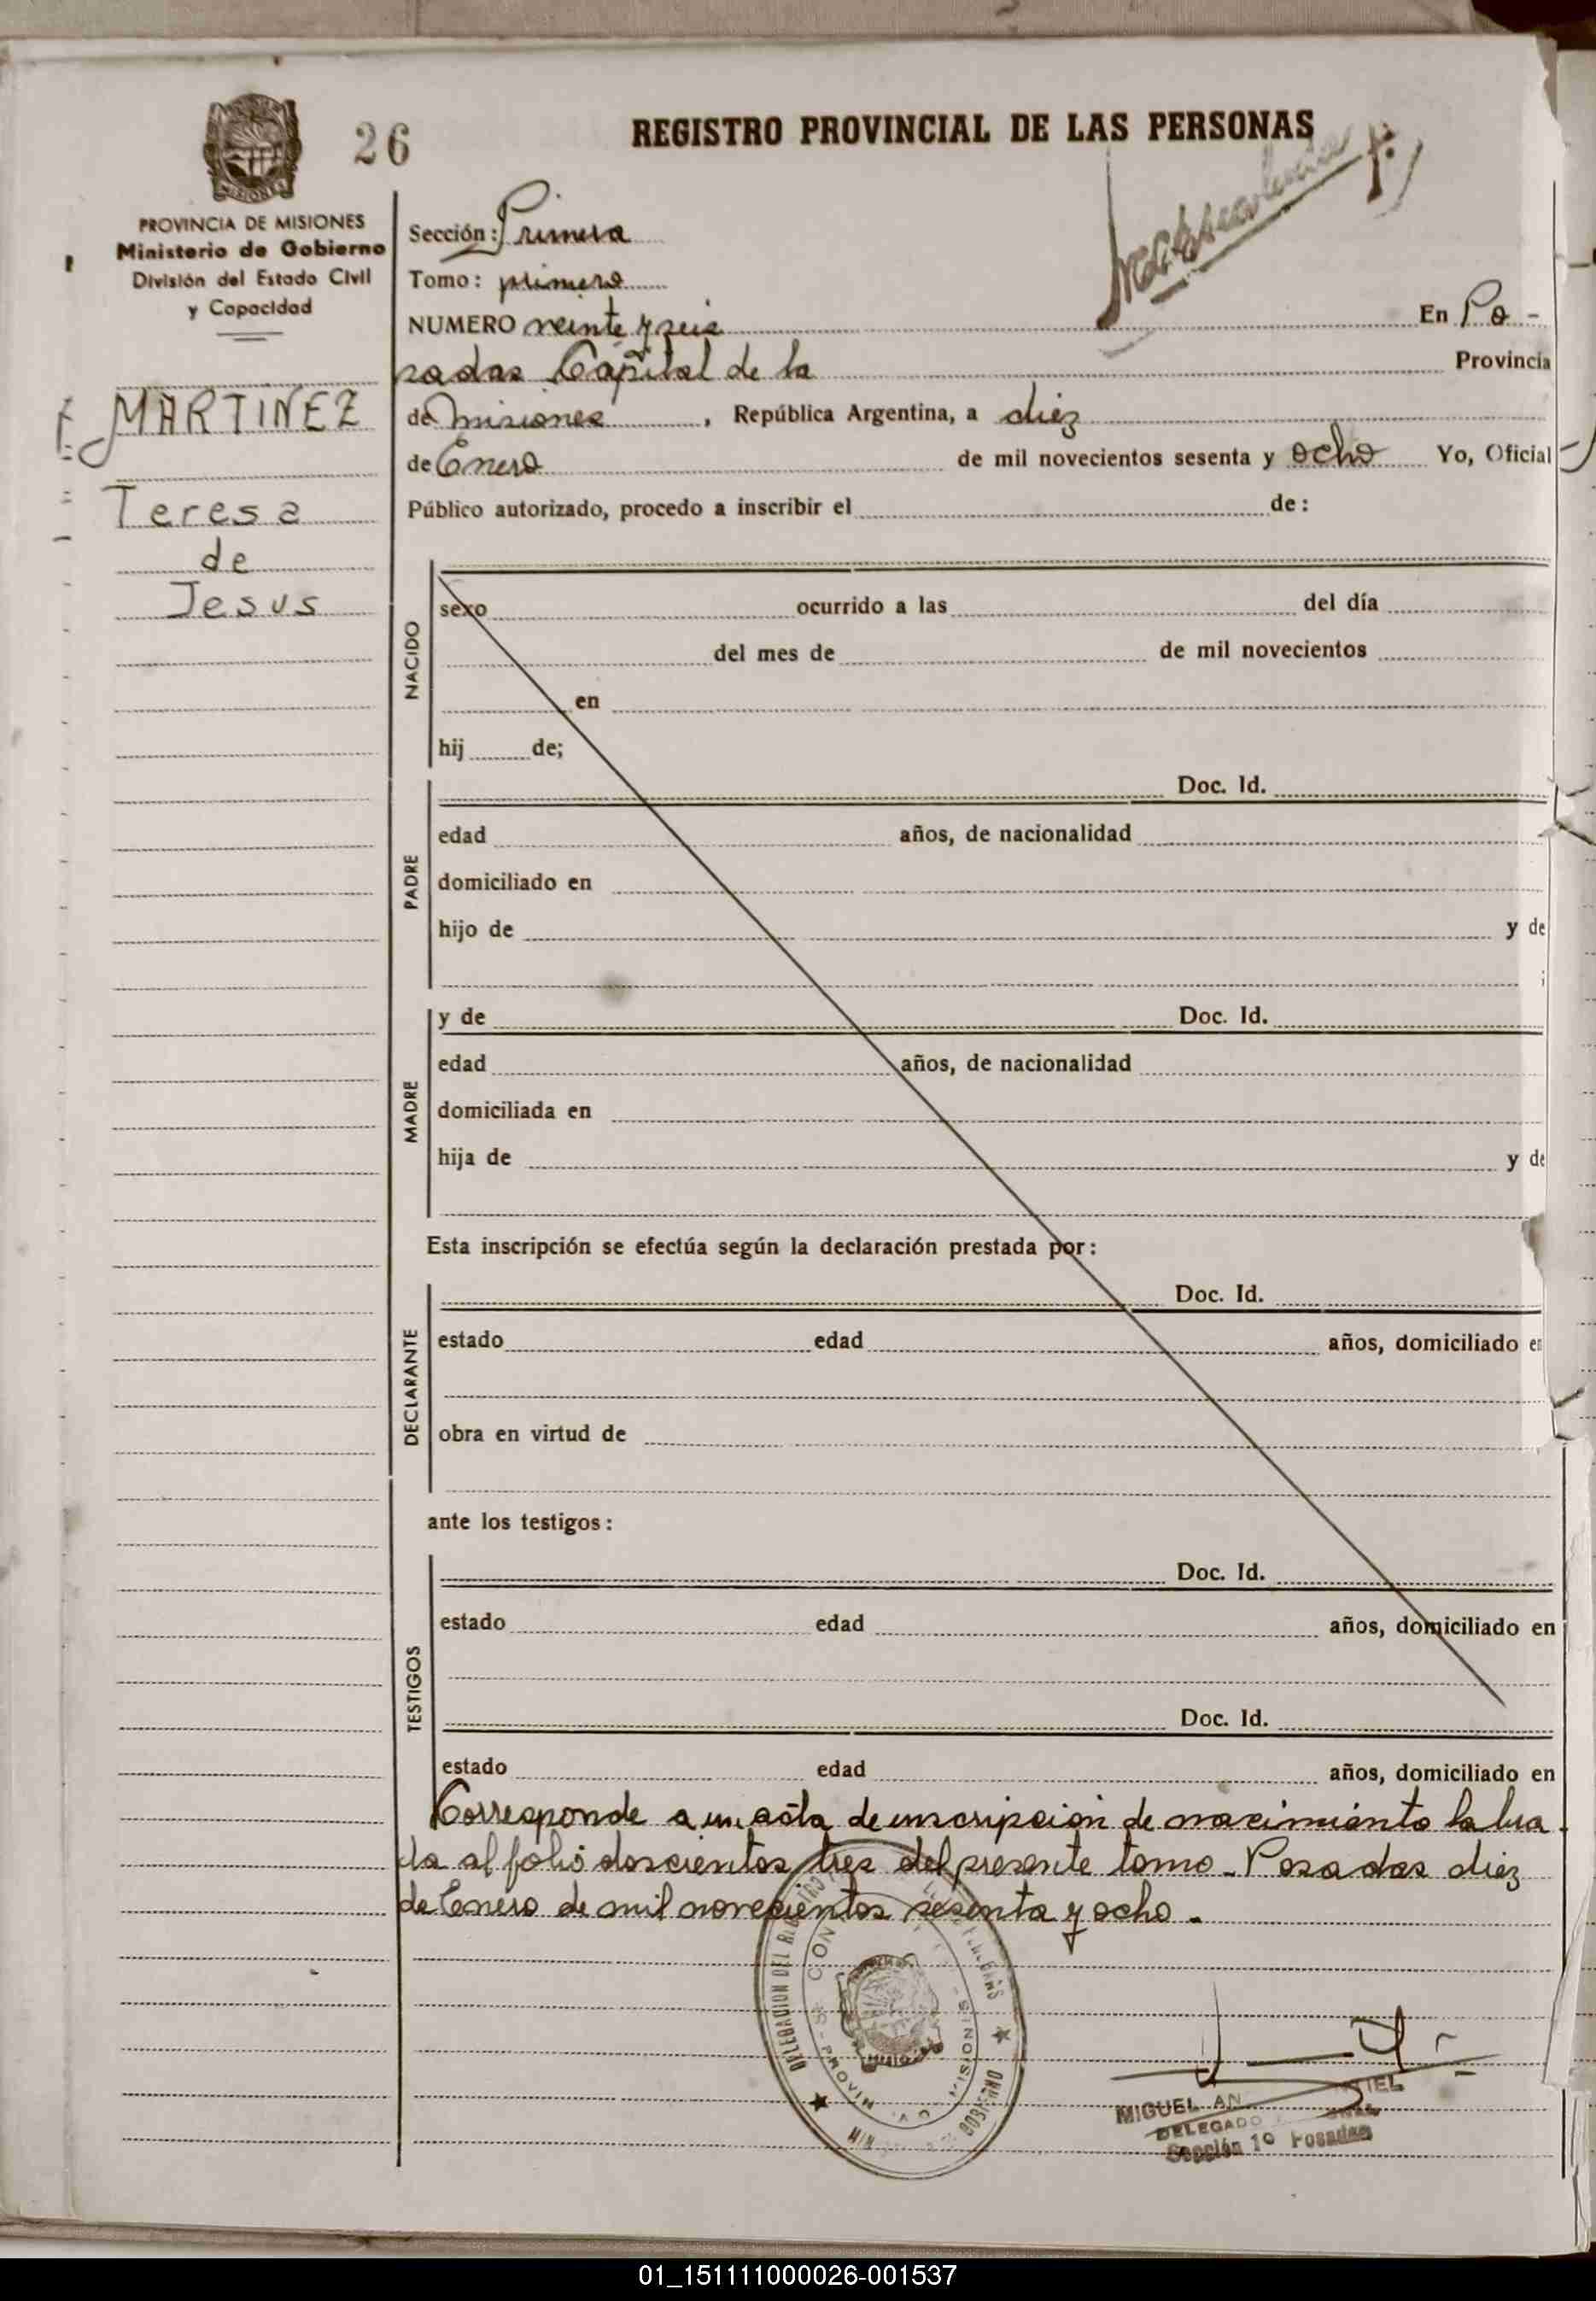 26
REGISTRO PROVINCIAL DE LAS PERSONAS
MISIONES
PROVINCIA DE MISIONES
Ministerio de Gobierno
División del Estado Civil
y Capacidad
MARTINEZ
Teresa
de
Jesus
Sección: Primera
Tomo: primero
NUMERO veinte y seis En Po-
sadas Capital de la Provincia
de Misiones, República Argentina, a diez
de Enero de mil novecientos sesenta y ocho Yo, Oficial
Público autorizado, procedo a inscribir el de:
NACIDO
sexo ocurrido a las del día
del mes de de mil novecientos
en
hij de;
PADRE
Doc. Id.
edad años, de nacionalidad
domiciliado en
hijo de y de
MADRE
y de Doc. Id.
edad años, de nacionalidad
domiciliada en
hija de y de
Esta inscripción se efectúa según la declaración prestada por:
DECLARANTE
Doc. Id.
estado edad años, domiciliado en
obra en virtud de
ante los testigos:
TESTIGOS
Doc. Id.
estado edad años, domiciliado en
Doc. Id.
estado edad años, domiciliado en
Corresponde a un acta de inscripción de nacimiento labra
da al folio doscientos tres del presente tomo - Posadas diez
de Enero de mil novecientos sesenta y ocho.
DELEGACION DEL
GOBIERNO
MIGUEL AN
DELEGADO
Sección 1º Posadas
01_151111000026-001537